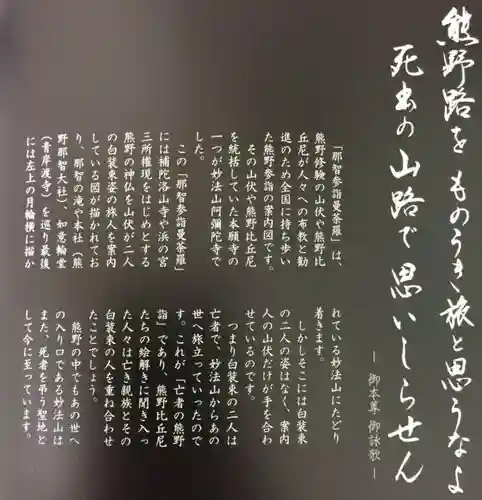 熊野路を ものうき旅と思うなよ
死出の山路で思いしらせん
― 御本尊 御詠歌 ―
「那智参詣曼荼羅」は、
熊野修験の山伏や熊野比
丘尼が人々への布教と勧
進のため全国に持ち歩い
た熊野参詣の案内図です。
その山伏や熊野比丘尼
を統括していた本願寺の
一つが妙法山阿彌陀寺で
した。
この「那智参詣曼荼羅」
には補陀洛山寺や浜の宮
三所権現をはじめとする
熊野の神仏を山伏が二人
の白装束姿の旅人を案内
している図が描かれてお
り、那智の滝や本社（熊
野那智大社）、如意輪堂
（青岸渡寺）を巡り最後
には左上の月輪横に描か
れている妙法山にたどり
着きます。
しかしそこには白装束
の二人の姿はなく、案内
人の山伏だけが手を合わ
せているのです。
つまり白装束の二人は
亡者で、妙法山からあの
世へ旅立っていったので
す。これが「亡者の熊野
詣」であり、熊野比丘尼
たちの絵解きに聞き入っ
た人々は亡き親族とその
白装束の人を重ね合わせ
たことでしょう。
熊野の中でもあの世へ
の入り口である妙法山は
また、死者を弔う聖地と
して今に至っています。